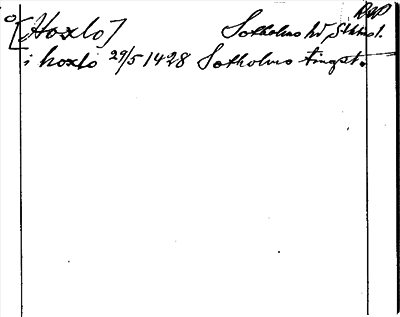 [Hoxlo] Sotholms hd, Sthlml.
i hoxlo 29/5 1428 Sotholms tingst.